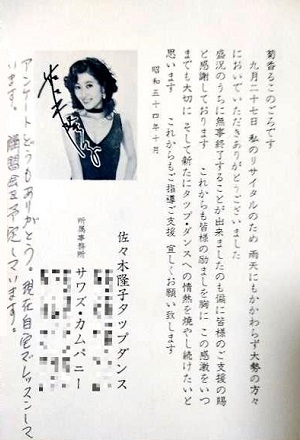 菊香るこのごろです
九月二十七日 私のリサイタルのため 雨天にもかかわらず大勢の方々
においでいただきありがとうございました
盛況のうちに無事終了することが出来ましたのも偏に皆様のご支援の賜
と感謝しております これからも皆様の励ましを胸に この感激をいつ
までも大切に そして新たにタップ・ダンスへの情熱を燃やし続けたいと
思います これからもご指導ご支援 宜しくお願い致します
昭和五十四年十月
佐々木隆子タップダンス
所属事務所
サワズ・カムパニー
佐々木隆子
アンケートどうもありがとう。現在自宅でレッスンして
います。講習会も予定しています。